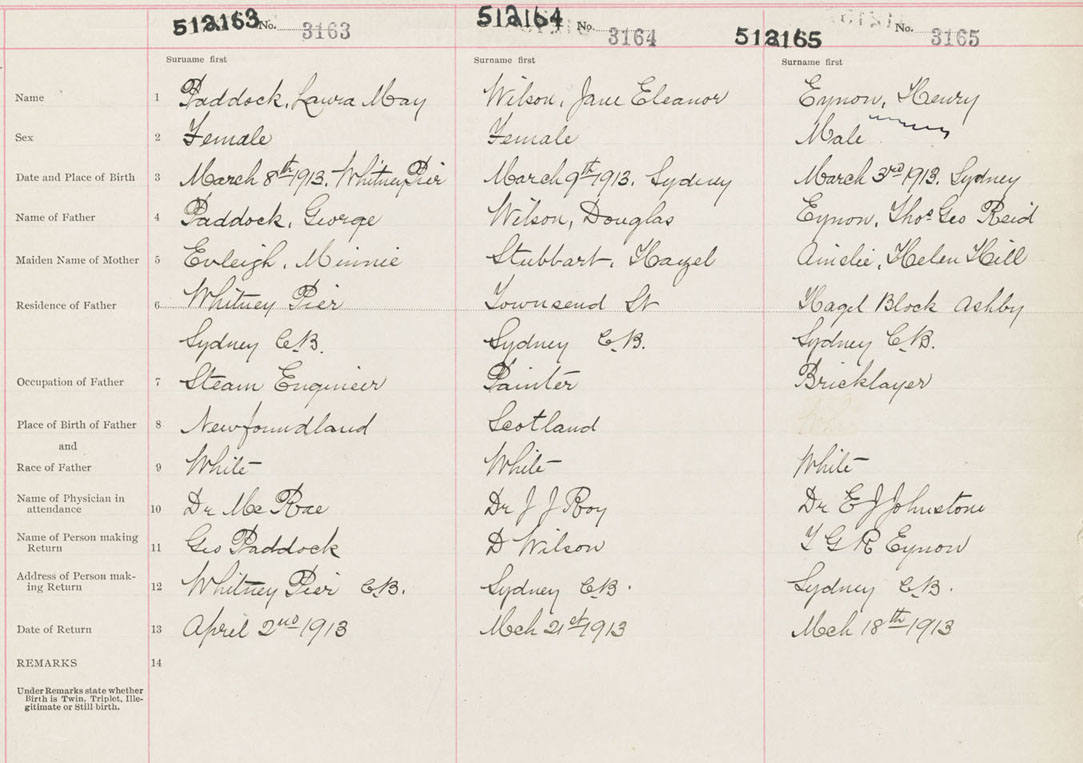 512163 No. 3163 512164 No. 3164 512165 No. 3165
Surname first Surname first Surname first
Name 1 Paddock, Laura May Wilson, Jane Eleanor Eynon, Henry
Sex 2 Female Female Male
Date and Place of Birth 3 March 8th 1913. Whitney Pier March 9th 1913. Sydney March 3rd 1913. Sydney
Name of Father 4 Paddock, George Wilson, Douglas Eynon, Thos Geo Reid
Maiden Name of Mother 5 Evleigh, Minnie Stubbart, Hazel Ainslie, Helen Hill
Residence of Father 6 Whitney Pier Townsend St Block Ashby
Sydney C.B. Sydney C.B. Sydney C.B.
Occupation of Father 7 Steam Engineer Painter Bricklayer
Place of Birth of Father 8 Newfoundland Scotland
and
Race of Father 9 White White White
Name of Physician in
attendance 10 Dr Mc Rae Dr J J Roy Dr E J Johnstone
Name of Person making
Return 11 Geo Paddock D Wilson T G R Eynon
Address of Person mak-
ing Return 12 Whitney Pier C.B. Sydney C.B. Sydney C.B.
Date of Return 13 April 2nd 1913 Mch 21st 1913 Mch 18th 1913
REMARKS 14
Under Remarks state whether
Birth is Twin, Triplet, Ille-
gitimate or Still-birth.